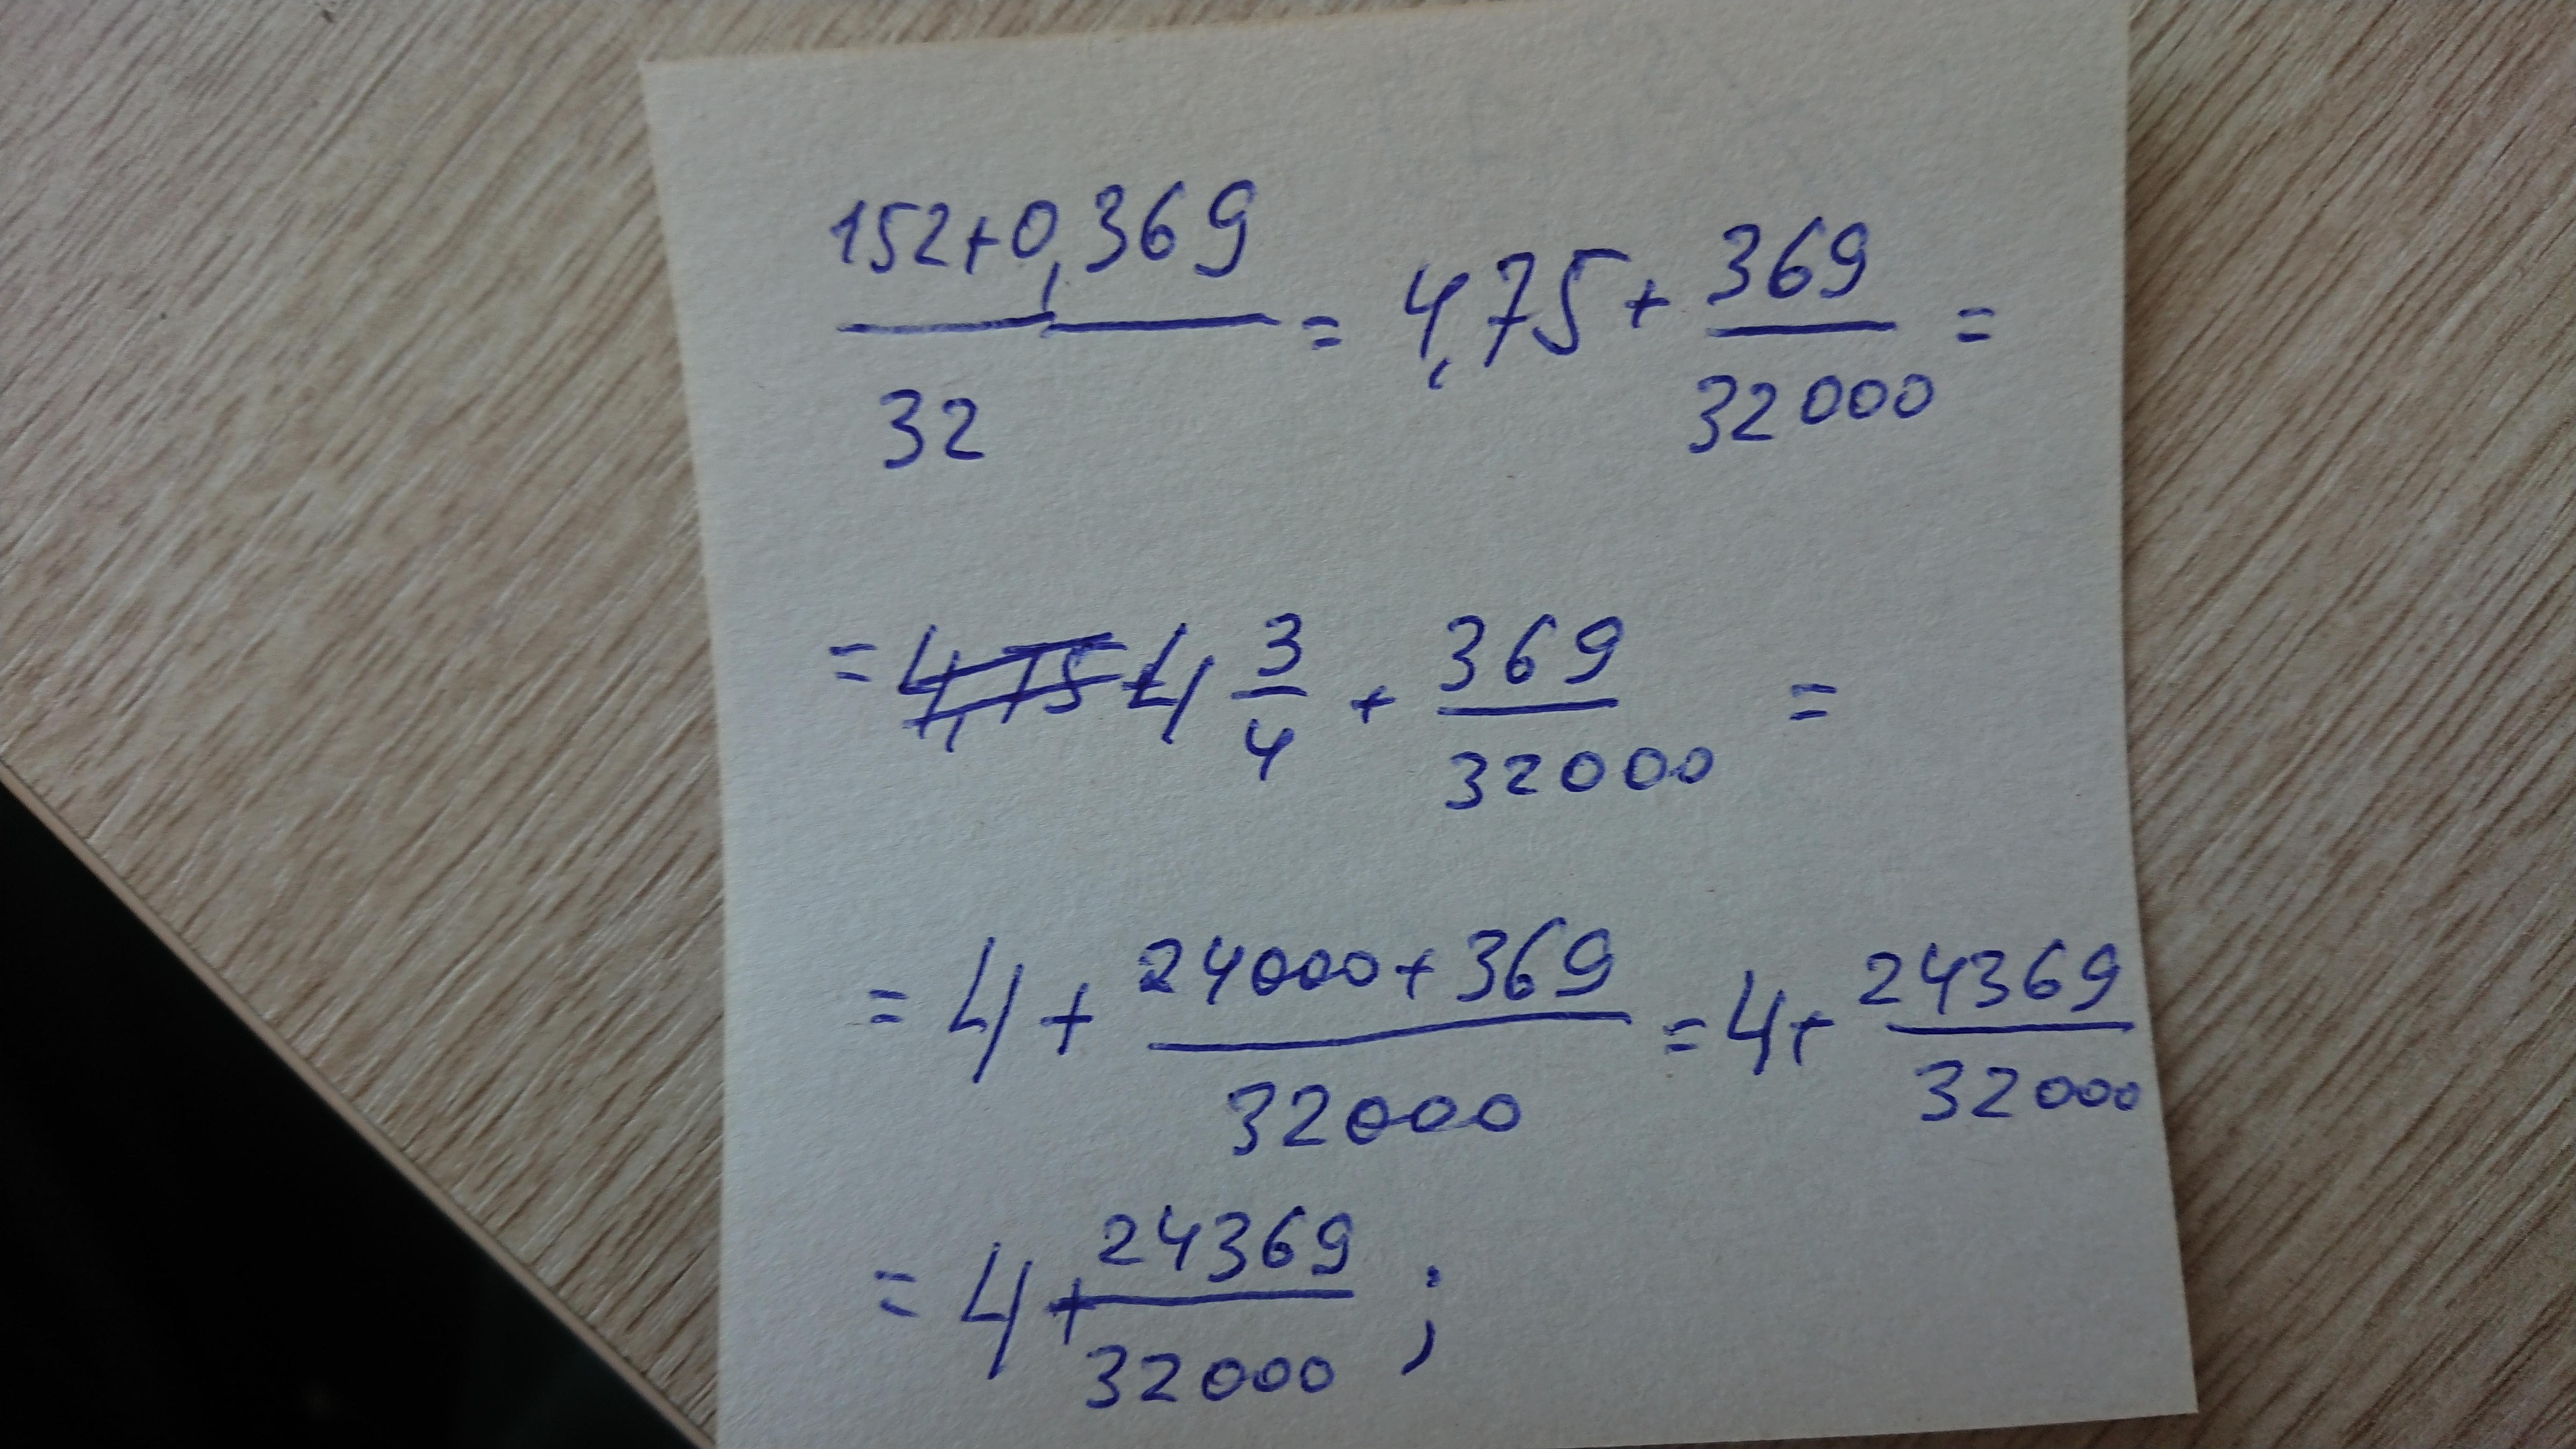 (152+0,369)/32 = 4,75 + 369/32000 =
= 4 3/4 + 369/32000 =
= 4 + (24000+369)/32000 = 4 + 24369/32000
= 4 + 24369/32000 ;